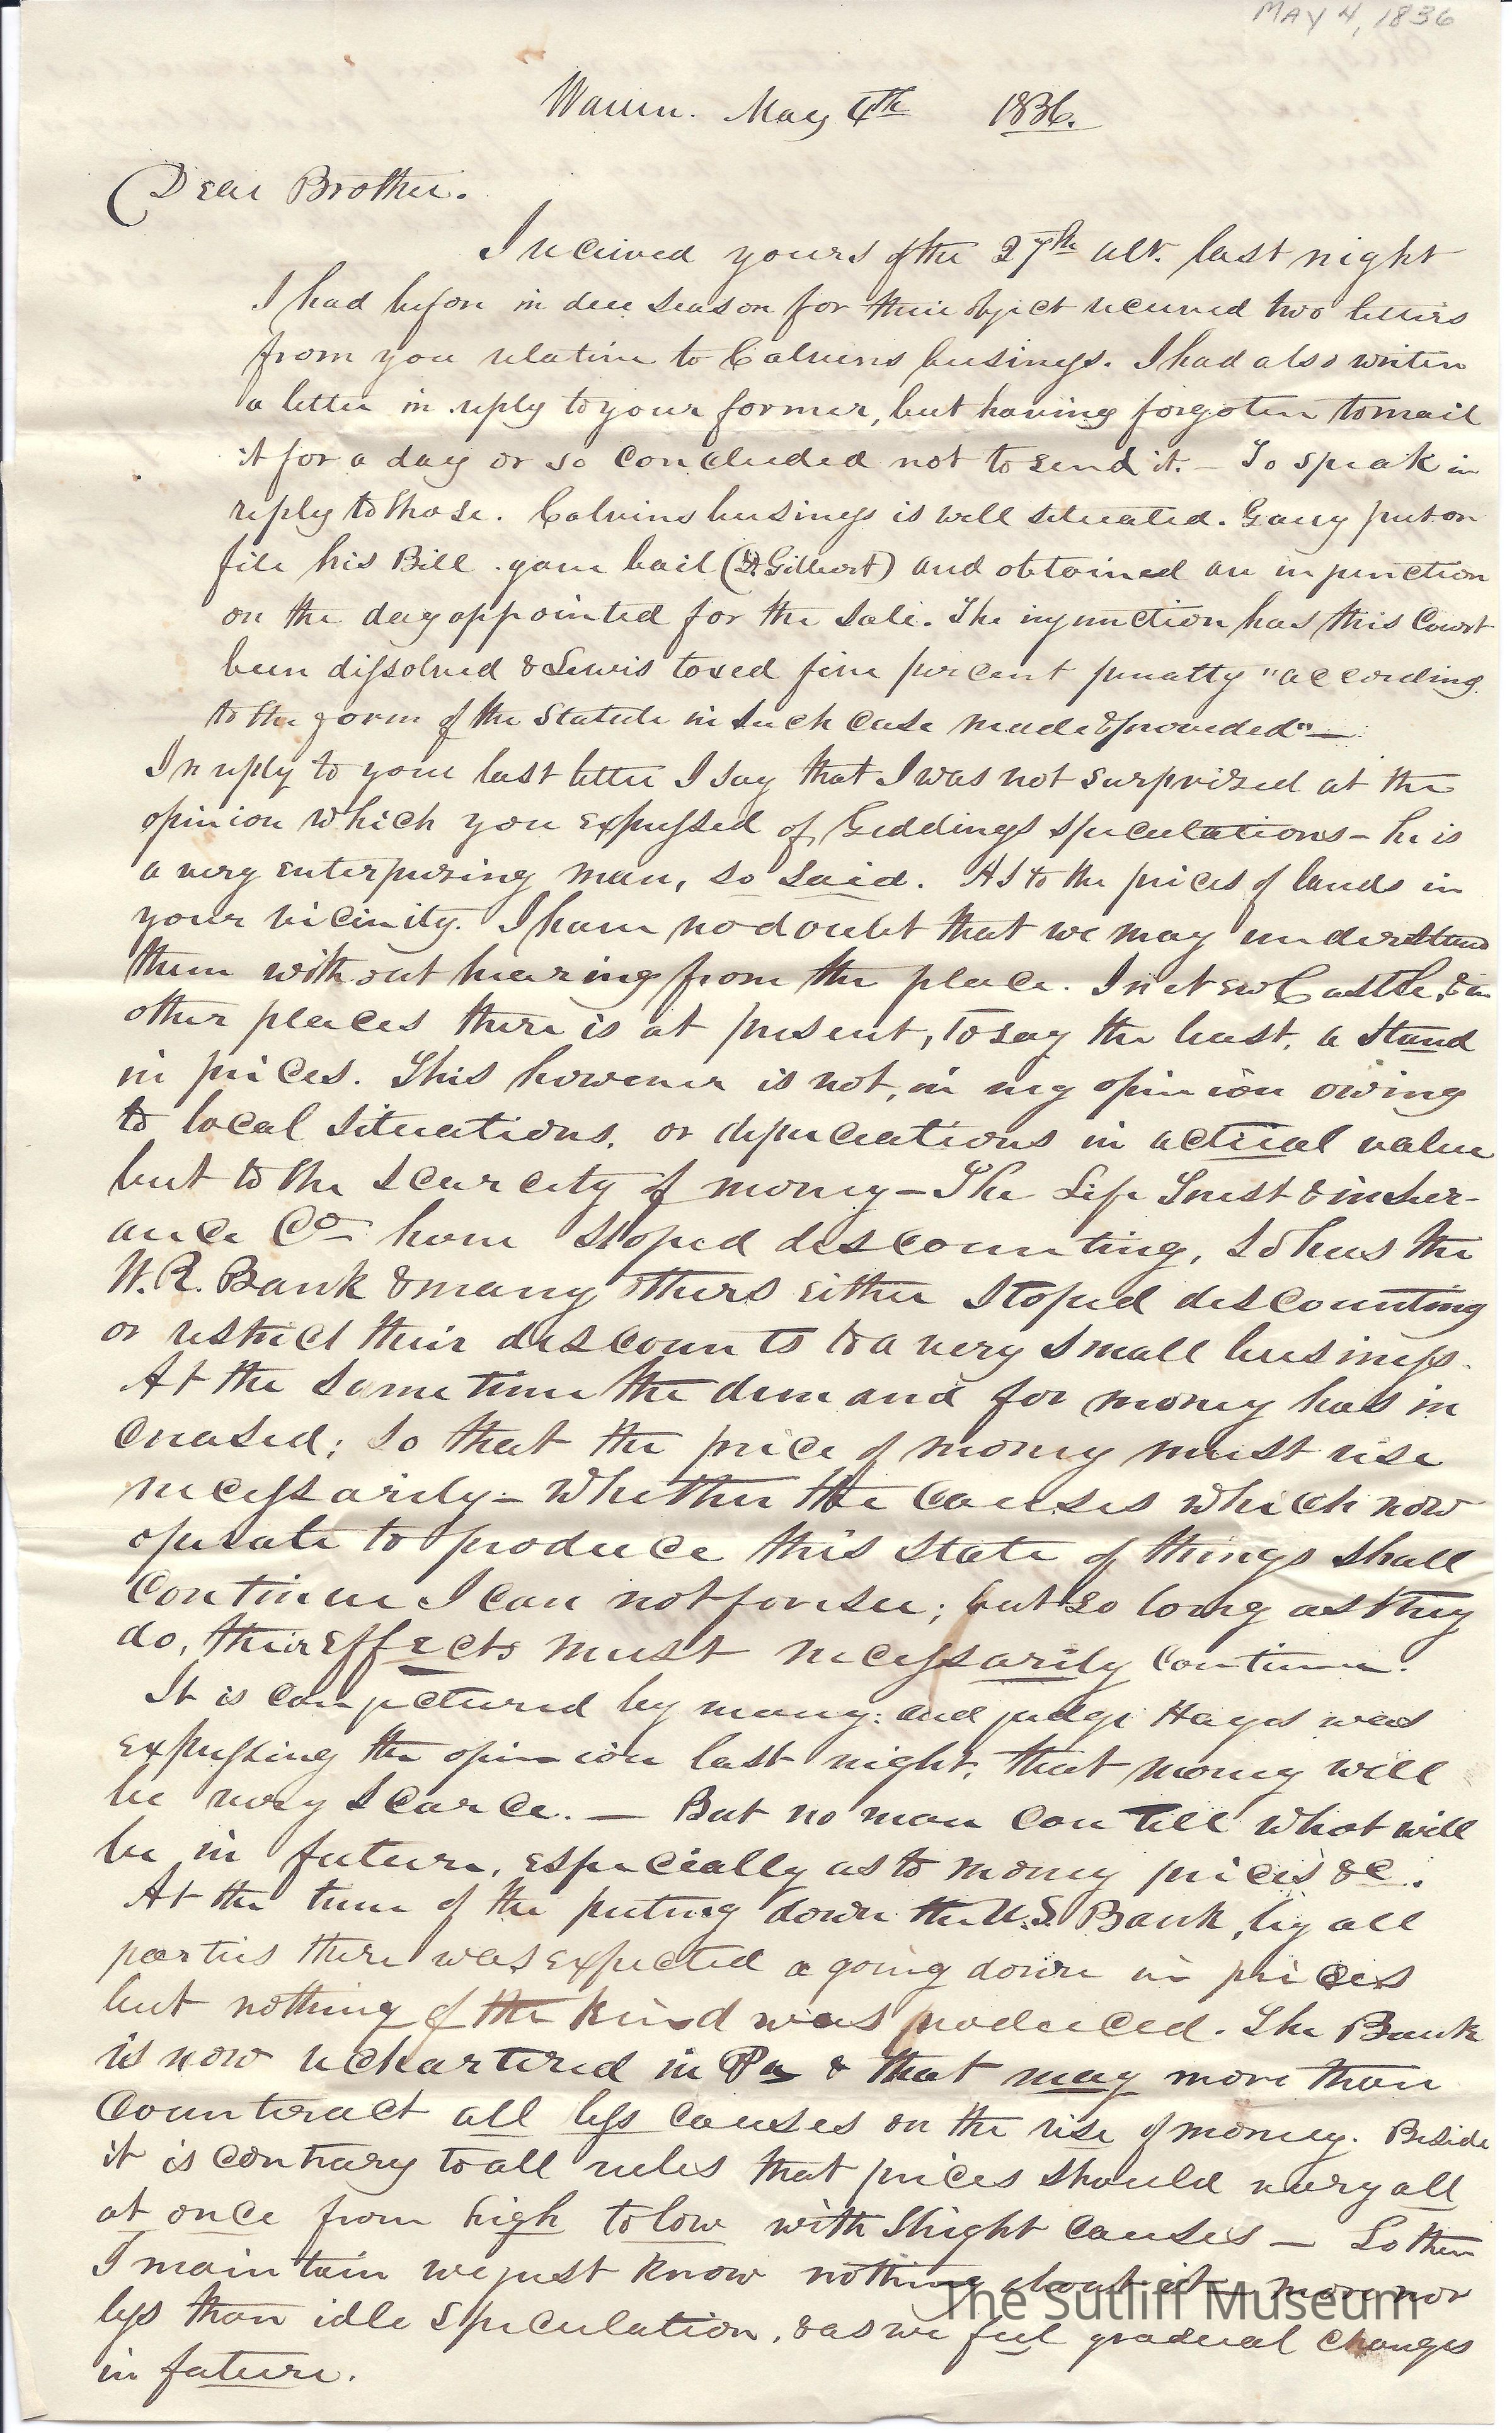 MAY 4, 1836
Warren. May 4th 1836.
Dear Brother.
I received yours of the 27th ult. last night
I had before in due season for their object received two letters
from you relative to Calvins business. I had also writen
a letter in reply to your former, but having forgoten to mail
it for a day or so concluded not to send it. – To speak in
reply to those. Calvins business is well situated. Gary put on
file his Bill. gave bail (Gilbert) and obtained an injunction
on the day appointed for the Sale. The injunction has this Court
been dissolved & Lewis taxed five percent penalty "according
to the form of the Statute in such case made & provided" —
In reply to your last letter I say that I was not surprised at the
opinion which you expressed of Giddings speculations – he is
a very enterprising man, so said. As to the prices of lands in
your vicinity. I have no doubt that we may understand
them without hearing from the place. In New Castle, & in
other places there is at present, to say the least, a stand
in prices. This however is not, in my opinion owing
to local situations, or depreciations in actual value
but to the scarcity of money – The Life Trust & insur-
ance Co have stoped discounting, so has the
W. R. Bank & many others either stoped discounting
or restrict their discounts to a very small business.
At the same time the demand for money has in
creased; so that the price of money must rise
necessarily – Whether the causes which now
operate to produce this state of things shall
continue I can not foresee; but so long as they
do, their effects must necessarily continue.
It is conjectured by many: and judge Hayes was
expressing the opinion last night, that money will
be very scarce. — But no man can tell what will
be in future, especially as to money prices &c.
At the time of the puting down the U.S. Bank, by all
parties there was expected a going down in prices
but nothing of the kind was produced. The Bank
is now rechartered in Pa & that may more than
counteract all less causes on the rise of money. Beside
it is contrary to all rules that prices should vary all
at once from high to low with slight causes — So then
I maintain we just know nothing about it – more nor
less than idle speculation, & as we feel gradual changes
in future.
The Sutliff Museum